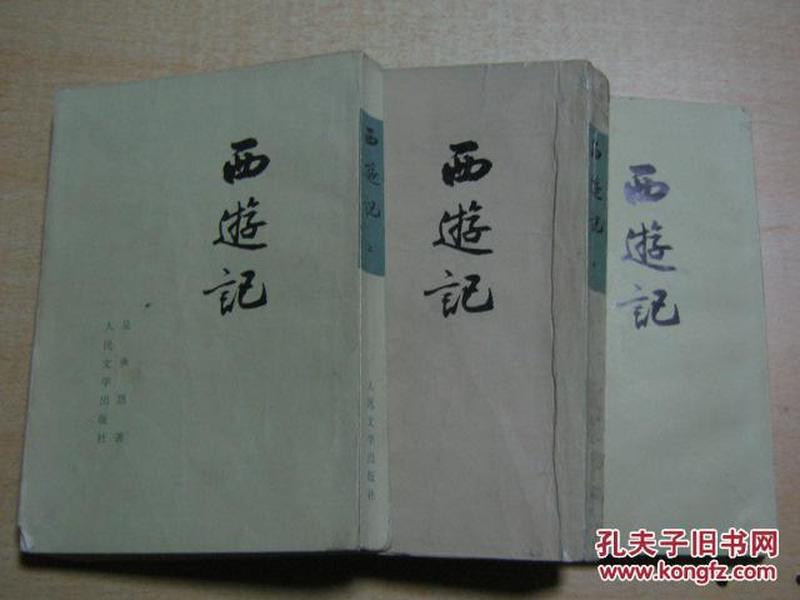 西遊記
吴承恩著
人民文学出版社
西遊記 上
人民文学出版社
西遊記
西遊記
西遊記
孔夫子旧书网
www.kongfz.com